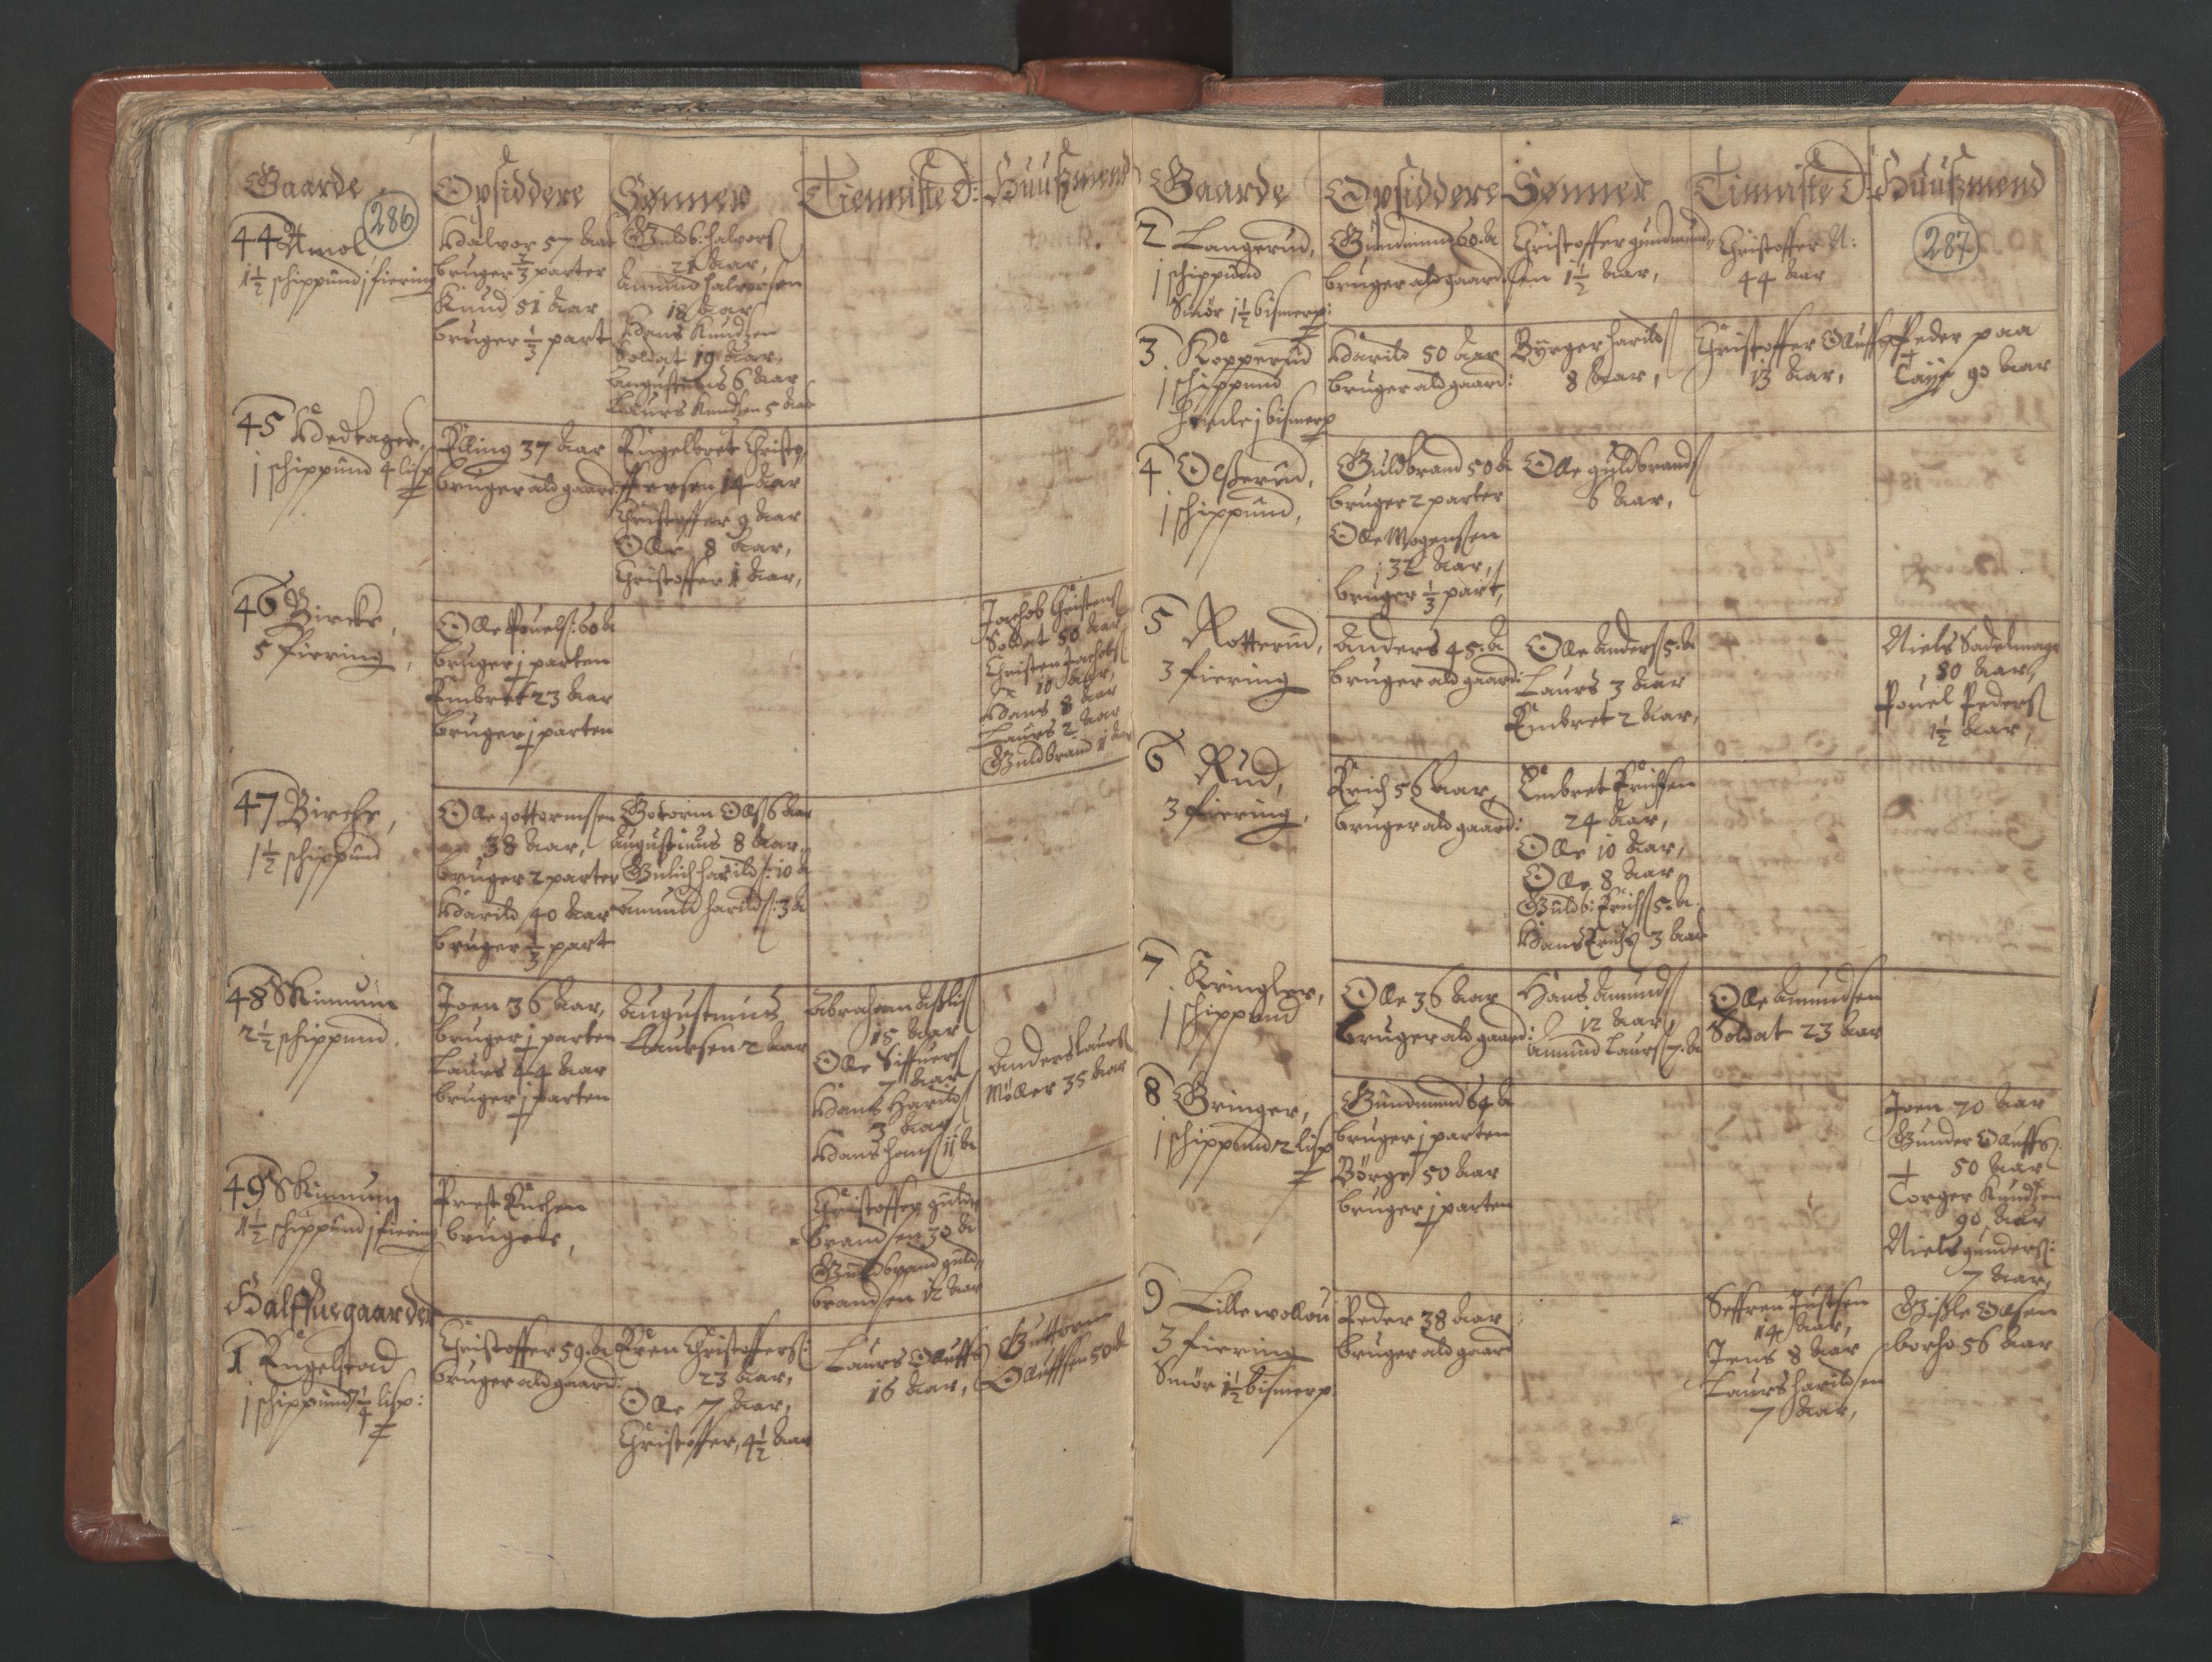 Gaarde
Opsiddere
Sønner
Tienniste D:
Huußmend
286
44 Amol
1½ schippund j fiering
Halvor 57 Aar
bruger ⅔ parter
Knud 51 Aar
bruger ⅓ part
Guldb: halvorß
21 Aar,
Amund halvorsen
18 Aar
Hans Knudsen
Soldat 19 Aar,
Augustinus 6 Aar
Laurs Knudsen 5 Aar
45 Hedeager,
j schippund 4 lisp
Elling 37 Aar
bruger ald gaard
Engelbret Christo,
ffersen 14 Aar
Christoffer 9 Aar
Olle 8 Aar,
Christoffer 1 Aar,
46 Bircke,
5 fiering,
Olle Pouels: 60 A
bruger j parten
Embret 23 Aar
bruger j parten
Jachob Christens
Soldat 50 Aar,
Christen Jachobß
10 Aar,
Hans 8 Aar
Laurs 2 Aar
Guldbrand 11 Aar
47 Bircke,
1½ schippund
Olle gottormssen
38 Aar,
bruger 2 parter
Harild 40 Aar
bruger ⅓ part
Gotorm Olss 6 Aar
Augustinus 8 Aar,
Gulich harilds: 10 A
Amund harilds: 3 A
48 Skinnum
2½ schippund,
Joen 36 Aar,
bruger j parten
Laurs 44 Aar
bruger j parten
Augustinus
Laursen 2 Aar
Abraham
15 Aar
Olle Siffuerß
7 Aar
Hans Harildß
3 Aar
Hans hanß 11 A
Anders Laurß
Møller 35 Aar
49 Skinnum
1½ schippund j fiering
Prest Enchen
bruger,
Christoffer guld,
brandsen 30 A
Guldbrand guld,
brandsen 12 Aar
Halffuegaarder
1 Engelstad
j schippund 7¼ lisp:
Christoffer 59 A
bruger ald gaard:
Even Christofferß:
23 Aar,
Olle 7 Aar,
Christoffer, 4½ Aar
Laurs Oluffß
16 Aar,
Guttorm
Oluffsen 50 A
Gaarde
Opsiddere
Sønner
Tienniste D:
Huußmend
287
2 Langerud,
j schippund
Smør 1½ bismerp:
Gundmund 60 A
bruger ald gaard
Christoffer gundmund,
sen 1½ Aar,
Christoffer N:
44 Aar
3 Kopperud
j schippund
Harild 50 Aar
bruger ald gaard:
Byrger harildß
8 Aar,
Christoffer Oluffß
13 Aar,
Peder paa
90 Aar
4 Olßerud,
j schippund,
Guldbrand 50 A
bruger 2 parter
Olle Mogenssen
32 Aar,
bruger ⅓ part,
Olle guldbrandß
6 Aar,
5 Rotterud,
3 fiering
Anders 45 A
bruger ald gaard:
Olle Anderß 5 A
Laurs 3 Aar
Embret 2 Aar,
Niels Sadelmager
80 Aar,
Pouel Pederß
1½ Aar,
6 Rud,
3 fiering,
Erich 56 Aar,
bruger ald gaard:
Embret Erichsen
24 Aar,
Olle 10 Aar,
Olle 8 Aar,
Guldb: Erichß 5 A
Hans Erichß 3 Aar
7 Kringler,
j schippund
Olle 36 Aar
bruger ald gaard:
Hans Amundß
12 Aar,
Amund Laurß 7 A
Olle Amundsen
Soldat 23 Aar
8 Gringer,
j schippund 2 lisp
Gundmund 64 A
bruger j parten
Børge 50 Aar
bruger j parten
Joen 70 Aar
Gunder Oluffß
50 Aar
Torger Knudsen
90 Aar
Niels gunderß:
7 Aar,
9 Lille wollou
3 fiering
Smør 1½ bismerp
Peder 38 Aar
bruger ald gaard
Seffren Justsen
14 Aar,
Jens 8 Aar
Laurs harildsen
7 Aar,
Gißle Olsen
56 Aar